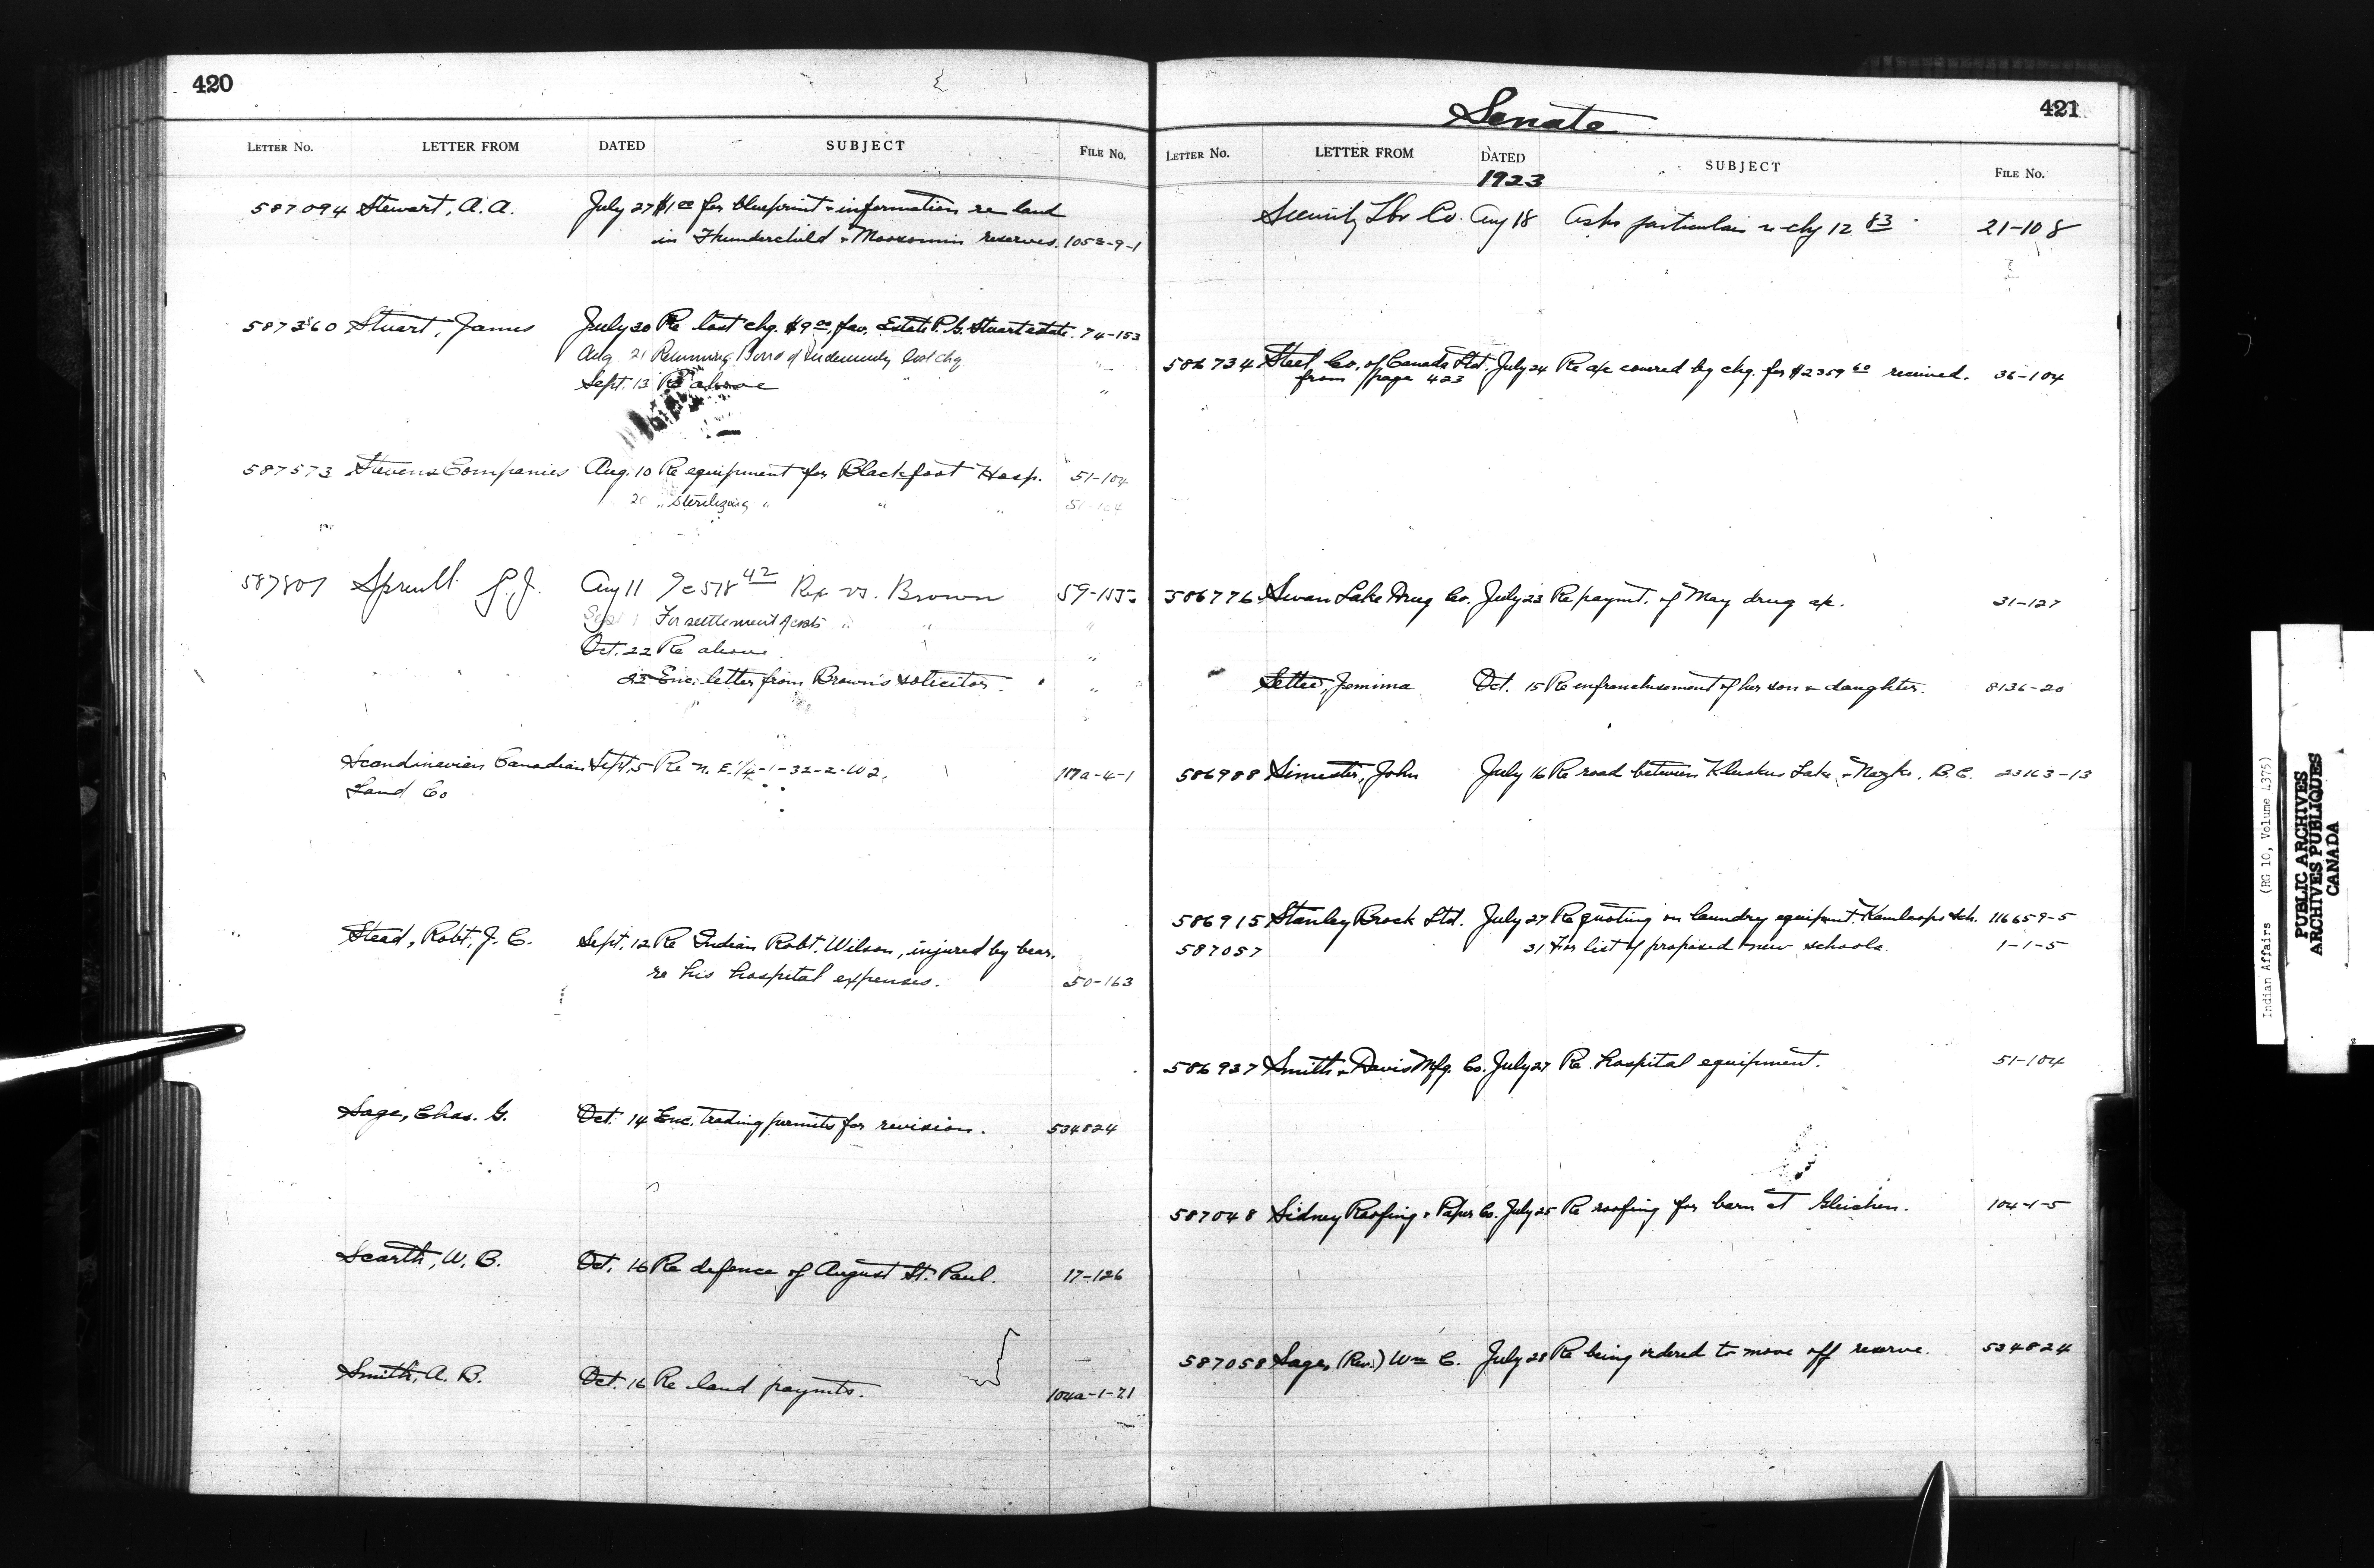 420
LETTER No. LETTER FROM DATED SUBJECT FILE No.
587094 Stewart, A.A. July 27 $1.00 for blueprint & information re land
in Thunderchild & Moosomin reserves. 1053-9-1
587360 Stuart, James July 20 Re lost chq. $9.00, fav. Estate P. G. Stuart estate. 74-153
Aug 21 Returning Bond of Indemnity lost chq "
Sept. 13 Re above "
587573 Stevens Companies Aug. 10 Re equipment for Blackfoot Hosp. 51-104
20 " Sterilizing " " " 51-104
587807 Spreull G.J. Aug 11 518 42 Rex vs. Brown
Sept 1 For settlement of costs " " "
Oct. 22 Re above. "
23 Enc. letter from Brown's solicitor. "
Scandinavian Canadian Sept. 5 Re N.E. 1/4-1-32-2-W2. 117a-4-1
Land Co
Stead, Robt. J. C. Sept. 12 Re Indian Robt. Wilson, injured by bear.
re his hospital expenses. 50-163
Sage, Chas. G. Oct. 14 Enc. trading permits for revision. 534824
Scarth, W. B. Oct. 16 Re defence of August St. Paul. 17-126
Smith, A. B. Oct. 16 Re land paymts. 104a-1-71
Senate
421
LETTER No. LETTER FROM DATED SUBJECT FILE No.
1923
Security Lbr Co. Aug 18 Asks particulars re chq 12 83 21-108
586734 Steel Co. of Canada Ltd. July 24 Re a/c covered by chq. for $2359 60 received. 36-104
from page 423
586776 Swan Lake Drug Co. July 23 Re paymt. of May drug a/c. 31-127
Settee, Jemima Oct. 15 Re enfranchisement of her son & daughter. 8136-20
586988 Simester, John July 16 Re road between Kluskus Lake & Nazko, B.C. 23163-13
586915 Stanley Brock Ltd. July 27 Re quoting on laundry equipmt. Kamloops sch. 116659-5
587057 31 For list of proposed new schools. 1-1-5
586937 Smith & Davis Mfg. Co. July 27 Re hospital equipment. 51-104
587048 Sidney Roofing & Paper Co. July 25 Re roofing for barn at Gleichen. 104-1-5
587058 Sage, (Rev.) Wm C. July 28 Re being ordered to move off reserve. 534824
Indian Affairs (RG 10, Volume 4375)
PUBLIC ARCHIVES
ARCHIVES PUBLIQUES
CANADA